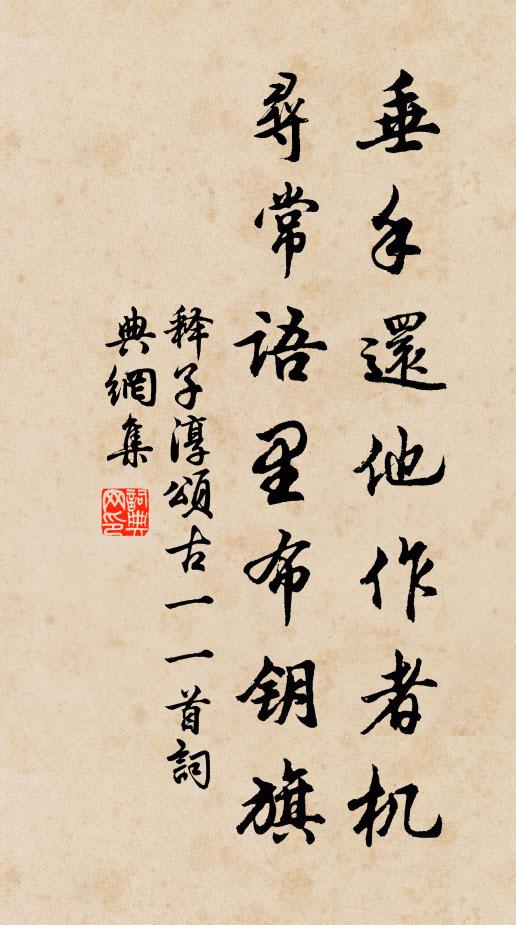 垂手還他作者机
尋常語里布钥旗
释子淳頌古一一首詞
典網集
詞典
网印